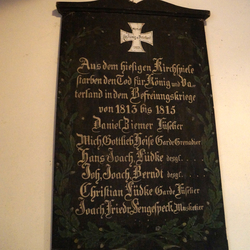 Aus dem hiesigen Kirchspiele
starben den Tod für König und Va-
terland in dem Befreiungskriege
von 1813 bis 1815
Daniel Ziemer Füselier
Mich. Gottlieb Heise Garde Grenadier
Hans Joach. Lüdke desgl.
Joh. Joach. Berndt desgl.
Christian Lüdke Garde Füselier
Joach. Friedr. Musketier